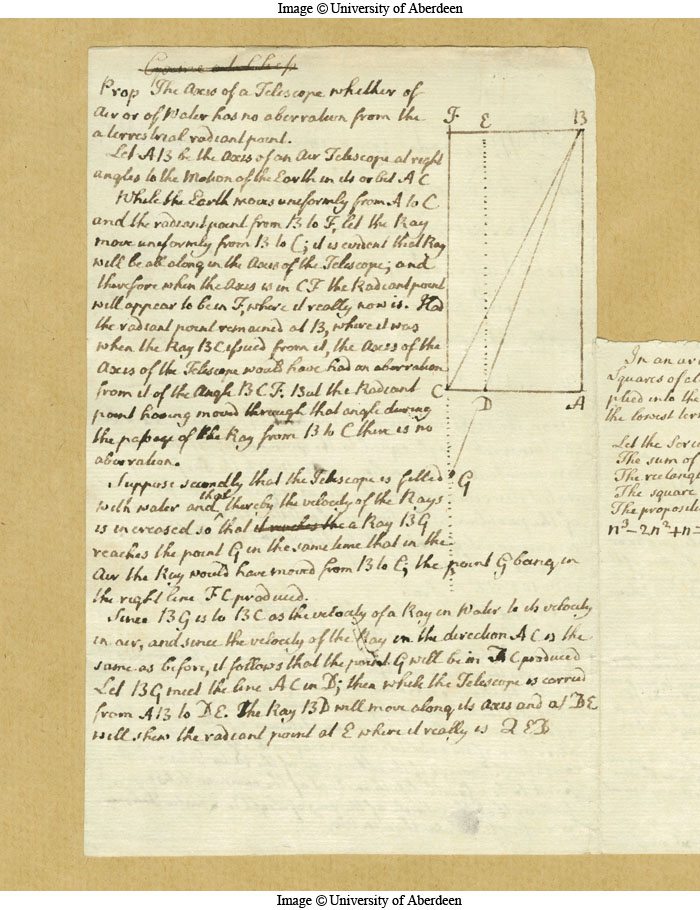 Image © University of Aberdeen
Prop The Axis of a Telescope whether of
Air or of Water has no aberration from the
a terrestrial radiant point.
Let AB be the Axis of an Air Telescope at right
angles to the Motion of the Earth in its orbit AC
While the Earth moves uniformly from A to C
and the radiant point from B to F, let the Ray
move uniformly from B to C; it is evident that Ray
will be all along in the Axis of the Telescope; and
therefore when the Axis is in CF the Radiant point
will appear to be in F, where it really now is. Had
the radiant point remained at B, where it was
when the Ray BC issued from it, the Axess of the
Axis of the Telescope would have had an aberration
from it of the Angle BCF. But the Radiant
point having moved through that angle during
the passage of the Ray from B to C there is no
aberration.
Suppose secondly that the Telescope is filled
with water and that thereby the velocity of the Rays
is increased so that it reaches the a Ray BG
reaches the point G in the same time that in the
Air the Ray would have moved from B to C; the point G being in
the right line FC produced.
Since BG is to BC as the velocity of a Ray in Water to its velocity
in air, and since the velocity of the Ray in the direction AC is the
same as before, it follows that the point G will be in FC produced
Let BG meet the line AC in D; then while the Telescope is carried
from AB to DE. The Ray BD will move along its axis and at DE
will shew the radiant point at E where it really is Q E D
F E B
C D A
G
In an
Squares of
plied into the
the lowest ter
Let the
The sum of
The rectang
The square
The
n³-2n²+n=
Image © University of Aberdeen